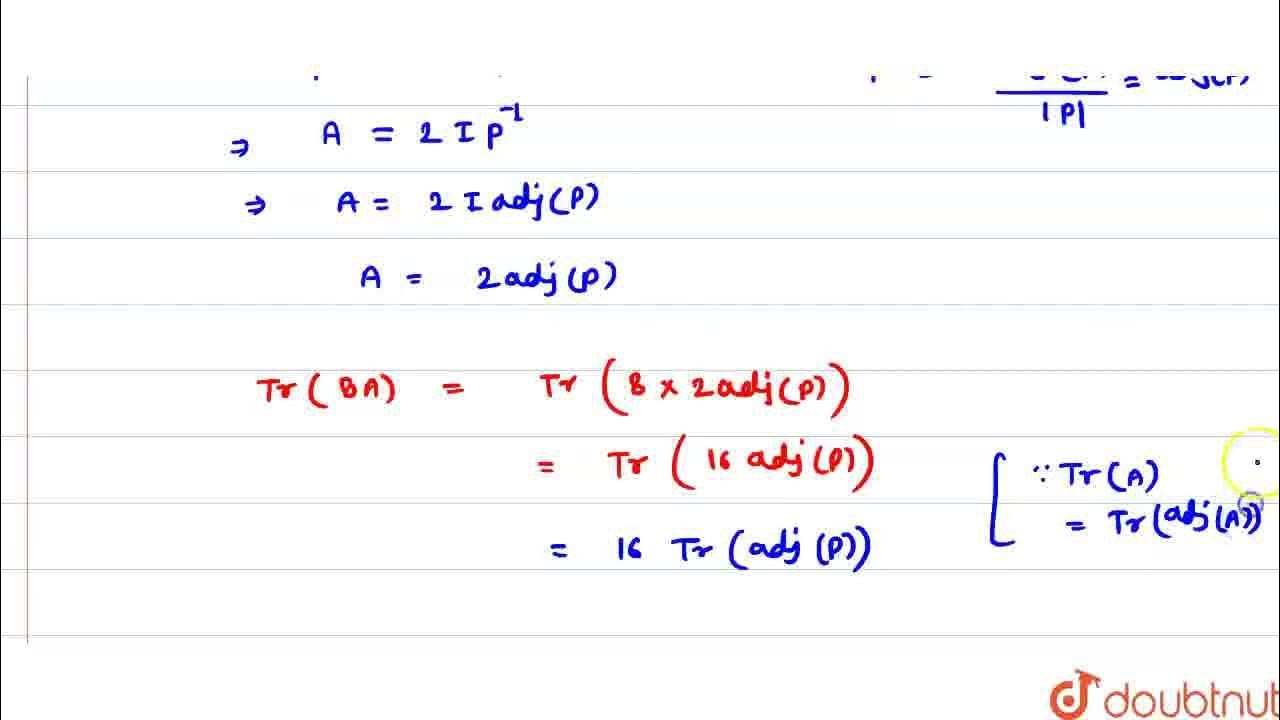 |P|
⇒ A = 2 I P⁻¹
⇒ A = 2 I adj(P)
A = 2 adj(P)
Tr(BA) = Tr(8 × 2adj(P))
= Tr(16 adj(P))
= 16 Tr(adj(P))
[∵ Tr(A)
= Tr(adj(A))
doubtnut